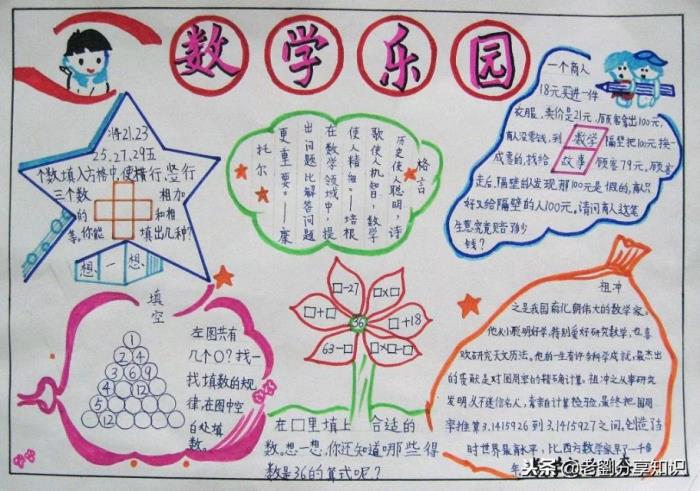 数学乐园
将21.23
25.27.29五
个数填入方格中,使横行,竖行
三个数 相加
的 和相
等。你能 填出几种?
想一想
历史使人聪明,诗
歌使人机智,数学
使人精细。——培根
在数学领域中,提
出问题比解答问题
更重要。——康
托尔
格言
一个商人
18元买进一件
衣服,卖价是21元,顾客拿出100元,
商人没零钱,到隔壁把100元换
成零的,找给顾客79元。顾客
数学
故事
走后,隔壁的发现那100元是假的,商人只
好又给隔壁的人100元。请问商人这笔
生意究竟赔了多少
钱?
填空
1
2 4
3 6 9
4 12
5 12
左图共有
几个○?找一
找填数的规
律,在图中空
白处填
数。
□-27
□×□
□+□
□+18
36
63-□
□×□
在□里填上 合适的
数。想一想,你还知道哪些得
数是36的算式呢?
祖冲
之是我国南北朝伟大的数学家。
他从小聪明好学,特别爱好研究数学,也喜
欢研究天文历法。他的一生有许多科学成就,最杰出
的贡献是对圆周率的精确计算。祖冲之从事研究
发明,从不迷信名人,靠亲自计算检验,最终把圆周
率推算3.1415926到3.1415927之间,创造了当
时世界最高水平,比西方数学家早了一千多
年
头条@老劉分享知识